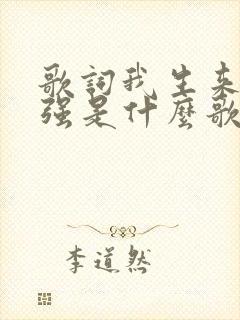 歌詞我生来
强是什麼歌
李道然